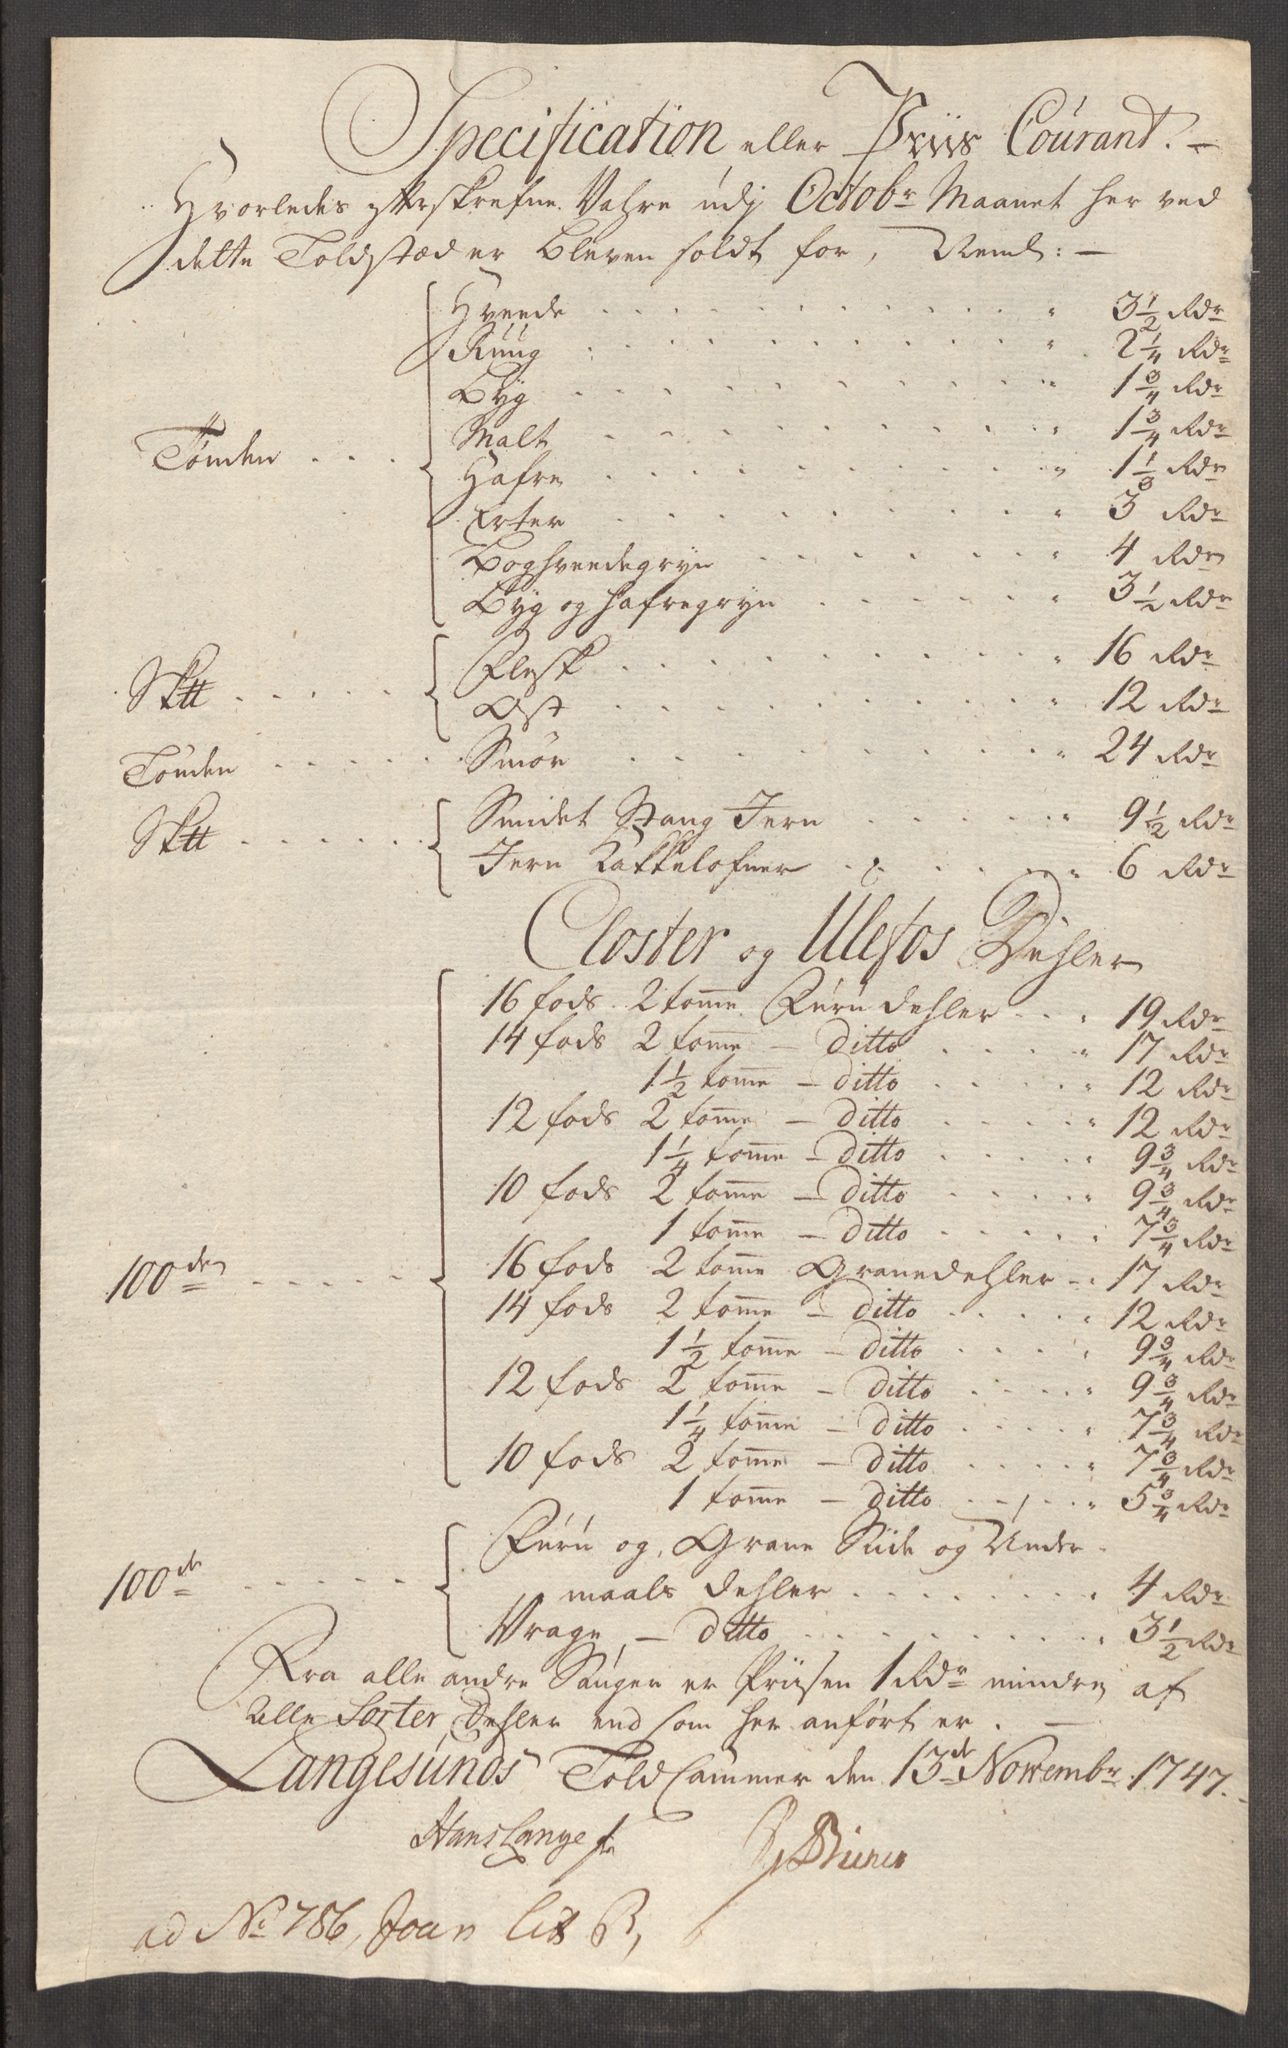 Specification eller Priis Courant.
Hvorledes efterskrefne Vahre udj Octobr Maanet her ved
dette Toldstæd er bleven soldt for, Neml:
Hvede 3 1/2 Rdr
Ruug 2 1/4 Rdr
Byg 1 3/4 Rdr
Malt 1 3/4 Rdr
Tønden Hafre 1 1/3 Rdr
Erter 3 Rdr
Boghveedegryn 4 Rdr
Byg og hafregryn 3 1/2 Rdr
Flesk 16 Rdr
Sk℔ Ost 12 Rdr
Tønden Smør 24 Rdr
Smidet Stang Jern 9 1/2 Rdr
Sk℔ Jern Kakkelofner 6 Rdr
Closter og Ulefos Dehler
16 fods 2 tomme Furu dehler 19 Rdr
14 fods 2 tomme - ditto 17 Rdr
1 1/2 tomme - ditto 12 Rdr
12 fods 2 tomme - ditto 12 Rdr
1 1/4 tomme - ditto 9 3/4 Rdr
10 fods 2 tomme - ditto 9 3/4 Rdr
1 tomme - ditto 7 3/4 Rdr
100de 16 fods 2 tomme Granedehler 17 Rdr
14 fods 2 tomme - ditto 12 Rdr
1 1/2 tomme - ditto 9 3/4 Rdr
12 fods 2 tomme - ditto 9 3/4 Rdr
1 1/4 tomme - ditto 7 3/4 Rdr
10 fods 2 tomme - ditto 7 3/4 Rdr
1 tomme - ditto 5 3/4 Rdr
Furu og Grane Siide og Under-
100de maals dehler 4 Rdr
Vrage - ditto 3 1/2 Rdr
Fra alle andre Sauger er Priisen 1 Rdr mindre af
alle Sorter Dehler end som her anført er.
Langesunds Told Cammer den 13de Novembr 1747.
Hans Lange
ad No 786, Joan lit B,